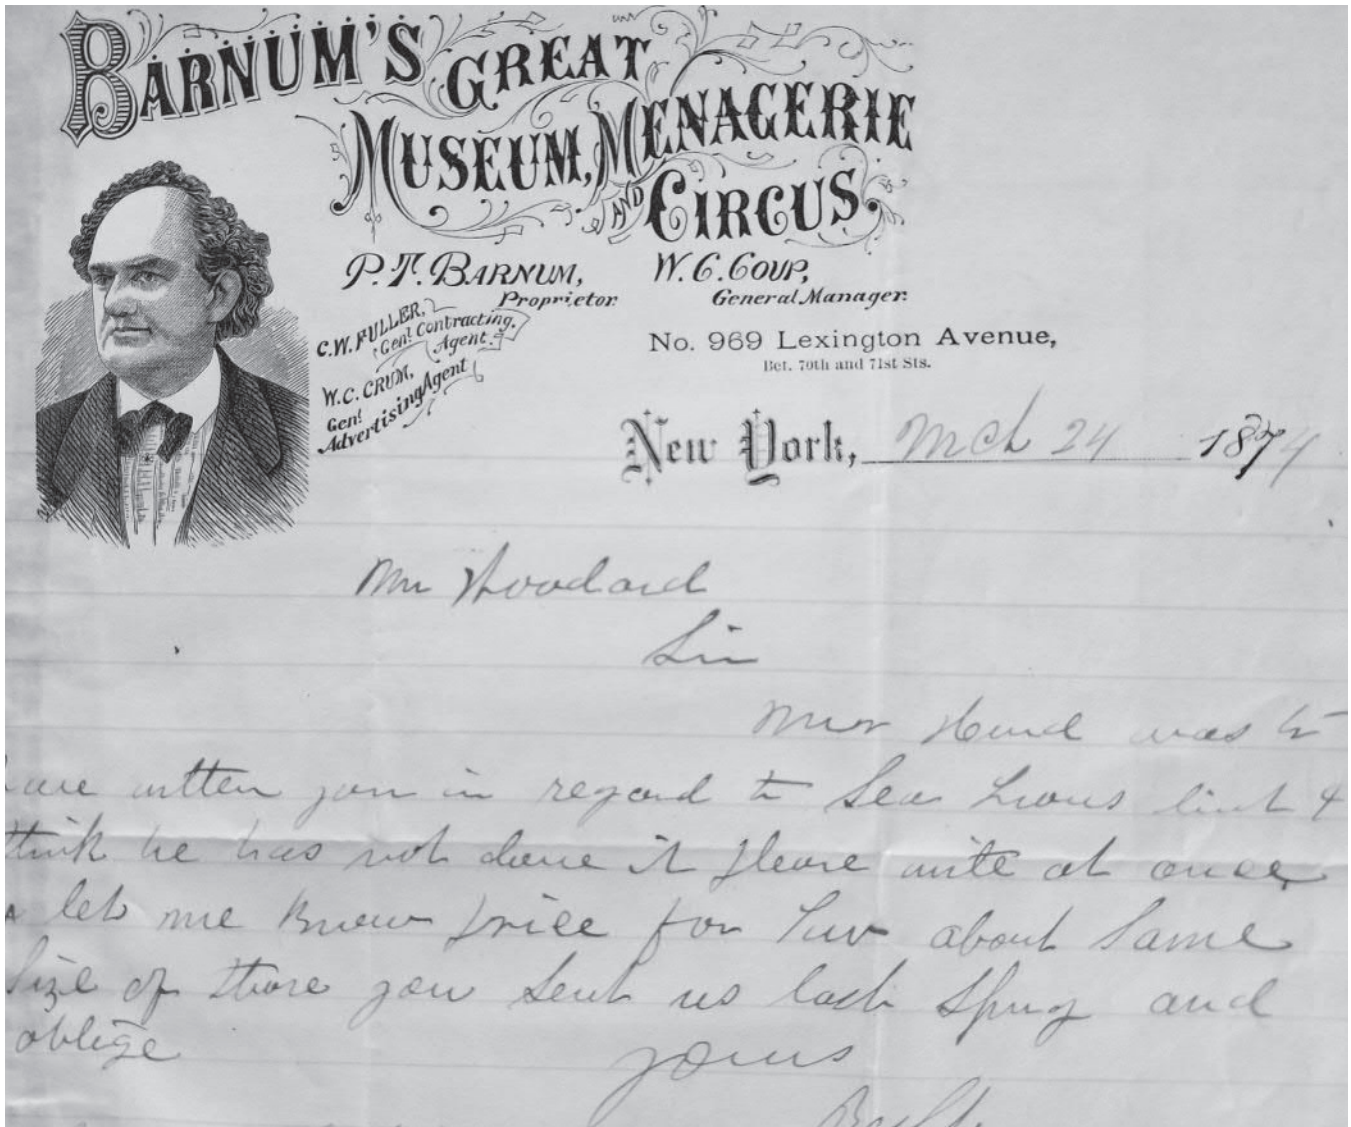 BARNUM'S GREAT
MUSEUM, MENAGERIE
AND CIRCUS.
P. T. BARNUM,
Proprietor.
W. C. COUP,
General Manager.
C. W. FULLER,
Genl Contracting
Agent.
W. C. CRUM,
Genl
Advertising Agent
No. 969 Lexington Avenue,
Bet. 70th and 71st Sts.
New York, Mch 24 1874
Mr Woodard
Sir
Mr Hurd was to
have written you in regard to Sea Lions but I
think he has not done it Please write at once
& let me know price for two about same
size of those you sent us last Spring and
oblige
yours